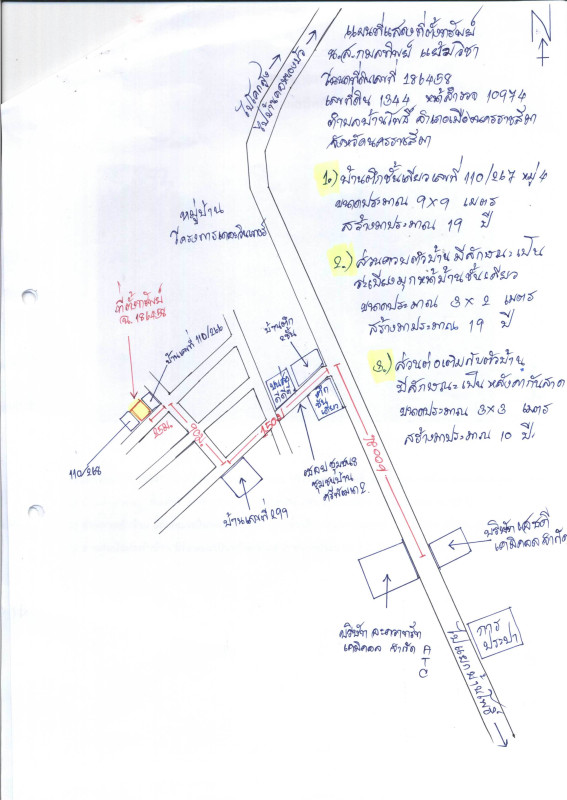 แผนที่แสดงที่ตั้งทรัพย์
น.ส. กมลทิพย์ แย้มวิชา
โฉนดที่ดินเลขที่ 186458
เลขที่ดิน 1344 หน้าสำรวจ 10974
ตำบลบ้านโพธิ์ อำเภอเมืองนครราชสีมา
จังหวัดนครราชสีมา
1.) บ้านตึกชั้นเดียวเลขที่ 110/267 หมู่ 4
ขนาดประมาณ 9x9 เมตร
สร้างมาประมาณ 19 ปี
2.) ส่วนควบตัวบ้าน มีลักษณะเป็น
ระเบียงมุกหน้าบ้านชั้นเดียว
ขนาดประมาณ 3 x 2 เมตร
สร้างมาประมาณ 19 ปี
3.) ส่วนต่อเติมกับตัวบ้าน
มีลักษณะเป็น หลังคากันสาด
ขนาดประมาณ 3x3 เมตร
สร้างมาประมาณ 10 ปี.
N
ไปบ้าน
หมู่บ้าน
โครงการ
ที่ตั้งทรัพย์
ฉ. 186458
บ้านเลขที่ 110/266
110/268
25ม.
90ม.
150ม.
600ม.
บ้านตึก
2ชั้น
ตึก
ชั้นเดียว
ชุมชน
ชุมชนบ้าน
ศรีพัฒนา 2.
บ้านเลขที่ 299
บริษัท เอเชีย
เคมิคอล จำกัด
บริษัท
เคมิคอล จำกัด
ATC
การ
ประปา
ไปแยกบ้านโพธิ์